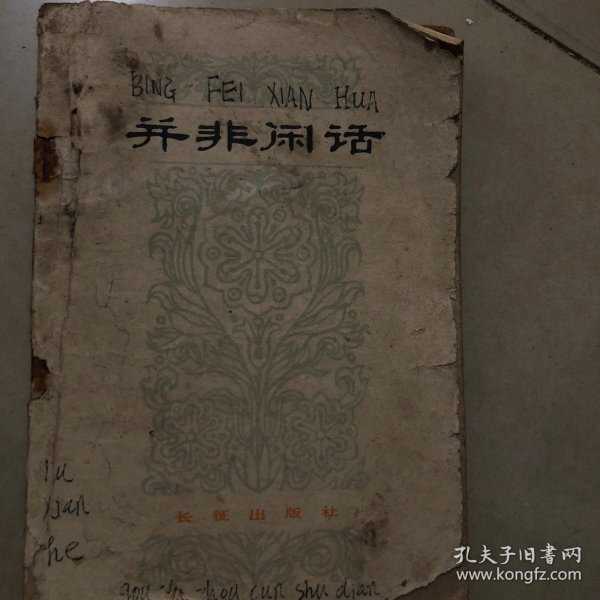 BING FEI XIAN HUA
并非闲话
xian
he
长征出版社
cun shu dian
孔夫子旧书网
www.kongfz.com